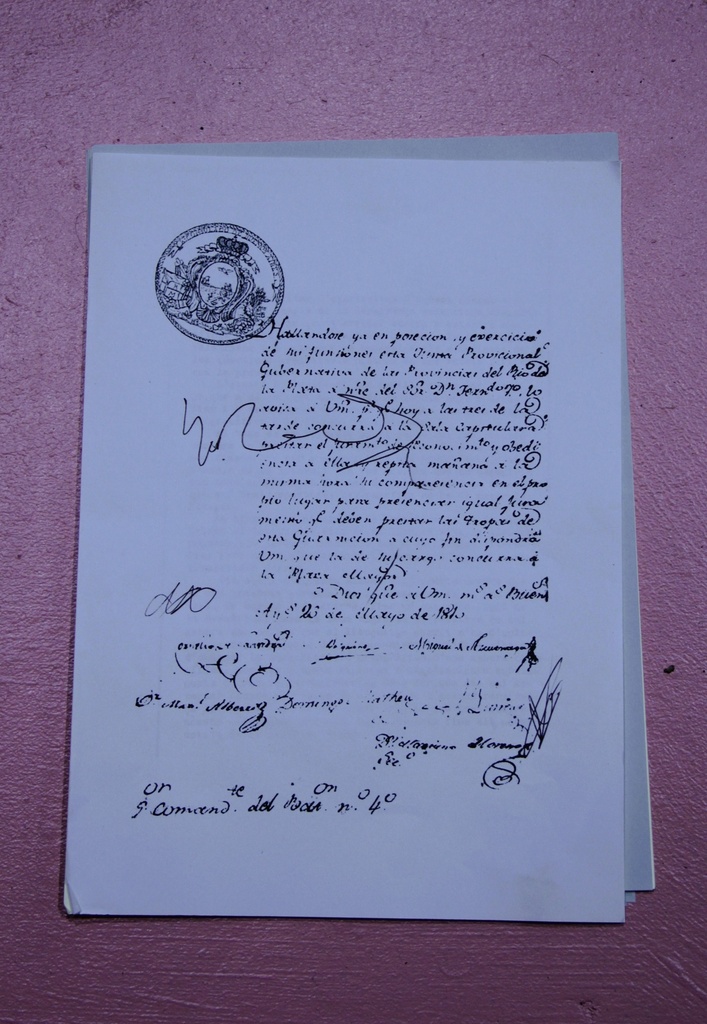 Hallandose ya en posecion, y exercicio
de sus funsiones esta Junta Provicional
Gubernativa de las Provincias del Rio de
la Plata a nre del Sor Dn Ferndo 7o, lo
avisa a Um. pa qe hoy a las tres de la
tarde concurra a la Sala Capitular a
prestar el juramto de reconocimto y obedi
encia a ella, y repita mañana a la
misma hora su comparesencia en el pro
pio lugar para presenciar igual jura
mento qe deven prestar las tropas de
esta Guarnicion a cuyo fin dispondrá
Um. que la de su cargo concurra a
la Plaza Mayor
Dios gue a Um. ms as Buenos
Ays 26 de Mayo de 1810
Miguel de Azcuenaga
Or Manl Alberti Domingo Matheu
Dr Mariano Moreno
Sec.o
Sor Comandte del Baton no 4o